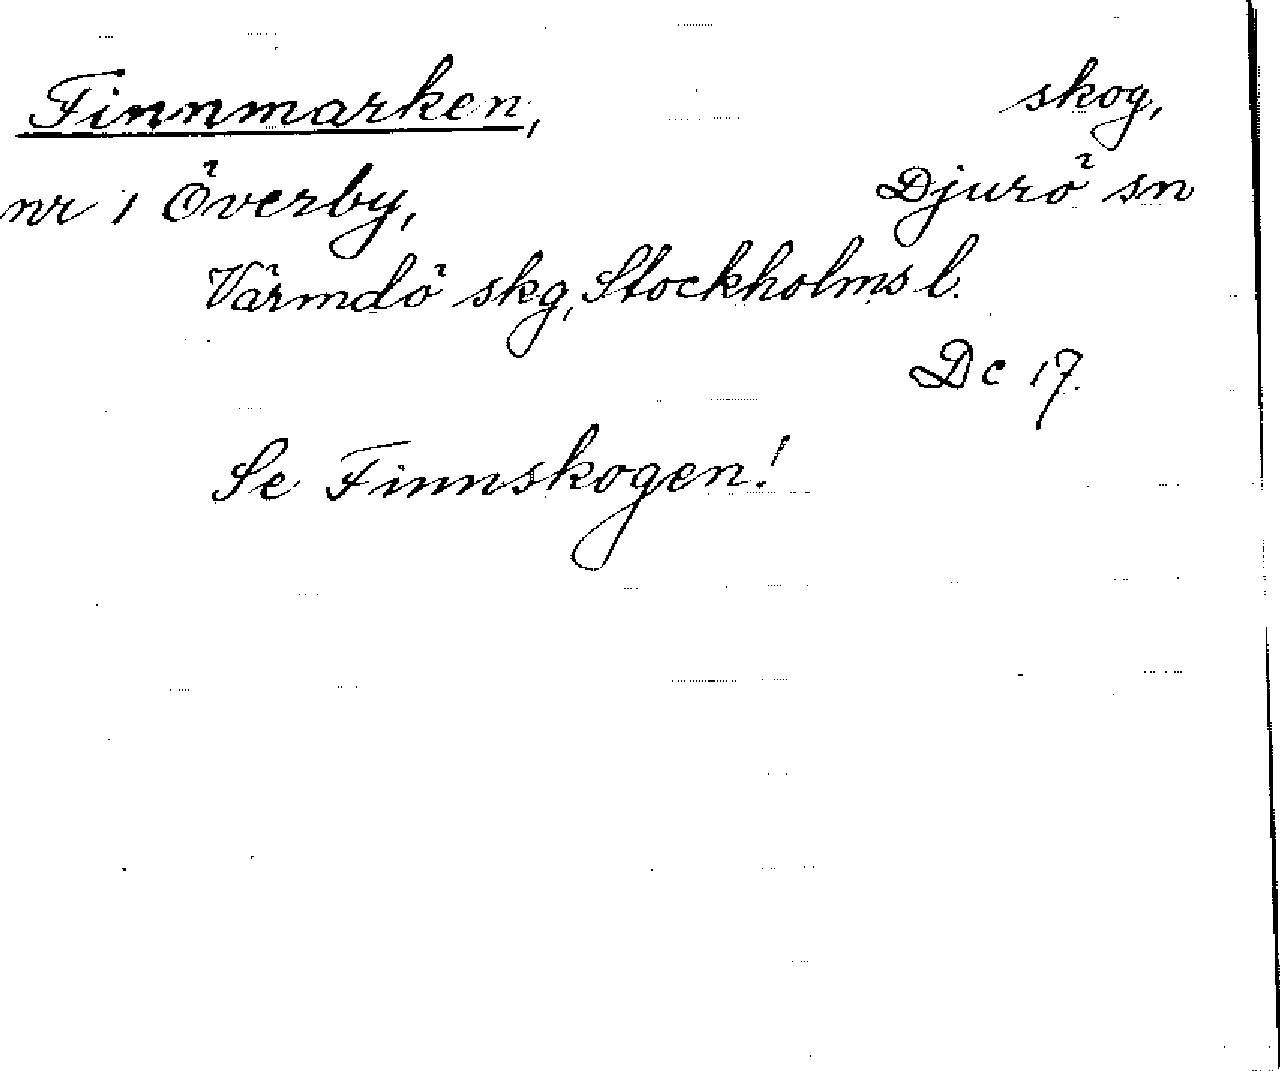 Finnmarken, skog,
nr 1 Överby, Djurö sn
Värmdö skg, Stockholms l.
Dc 17.
Se Finnskogen!